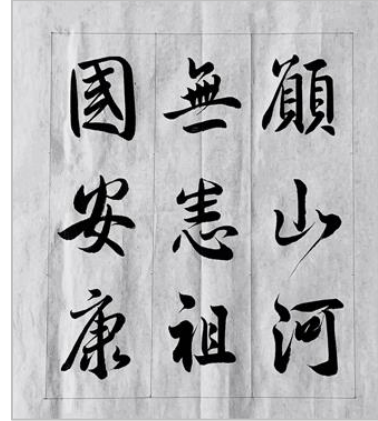 願山河
無恙祖
國安康